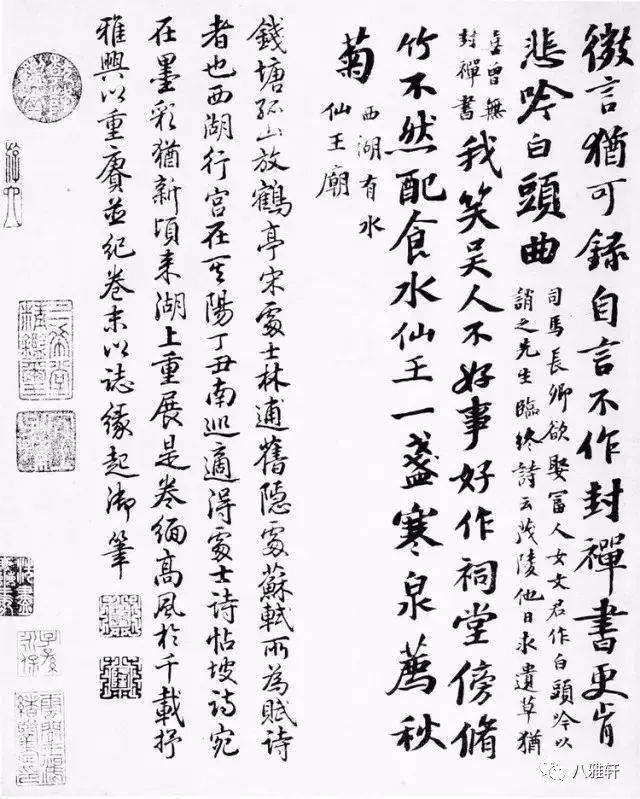 微言猶可錄自言不作封禪書更肯
悲吟白頭曲
司馬長卿欲娶富人女文君作白頭吟以
誚之先生臨終詩云茂陵他日求遺草猶
喜曾無
封禪書
我笑吳人不好事好作祠堂傍脩
竹不然配食水仙王一盞寒泉薦秋
菊
西湖有水
仙王廟
錢塘孤山放鶴亭宋處士林逋舊隱處蘇軾所為賦詩
者也西湖行宮在其陽丁丑南巡適得處士詩帖坡詩宛
在墨彩猶新頃來湖上重展是卷緬高風於千載抒
雅興以重賡並紀卷末以誌緣起御筆
三希堂
精鑑璽
子孫
永保
八雅轩